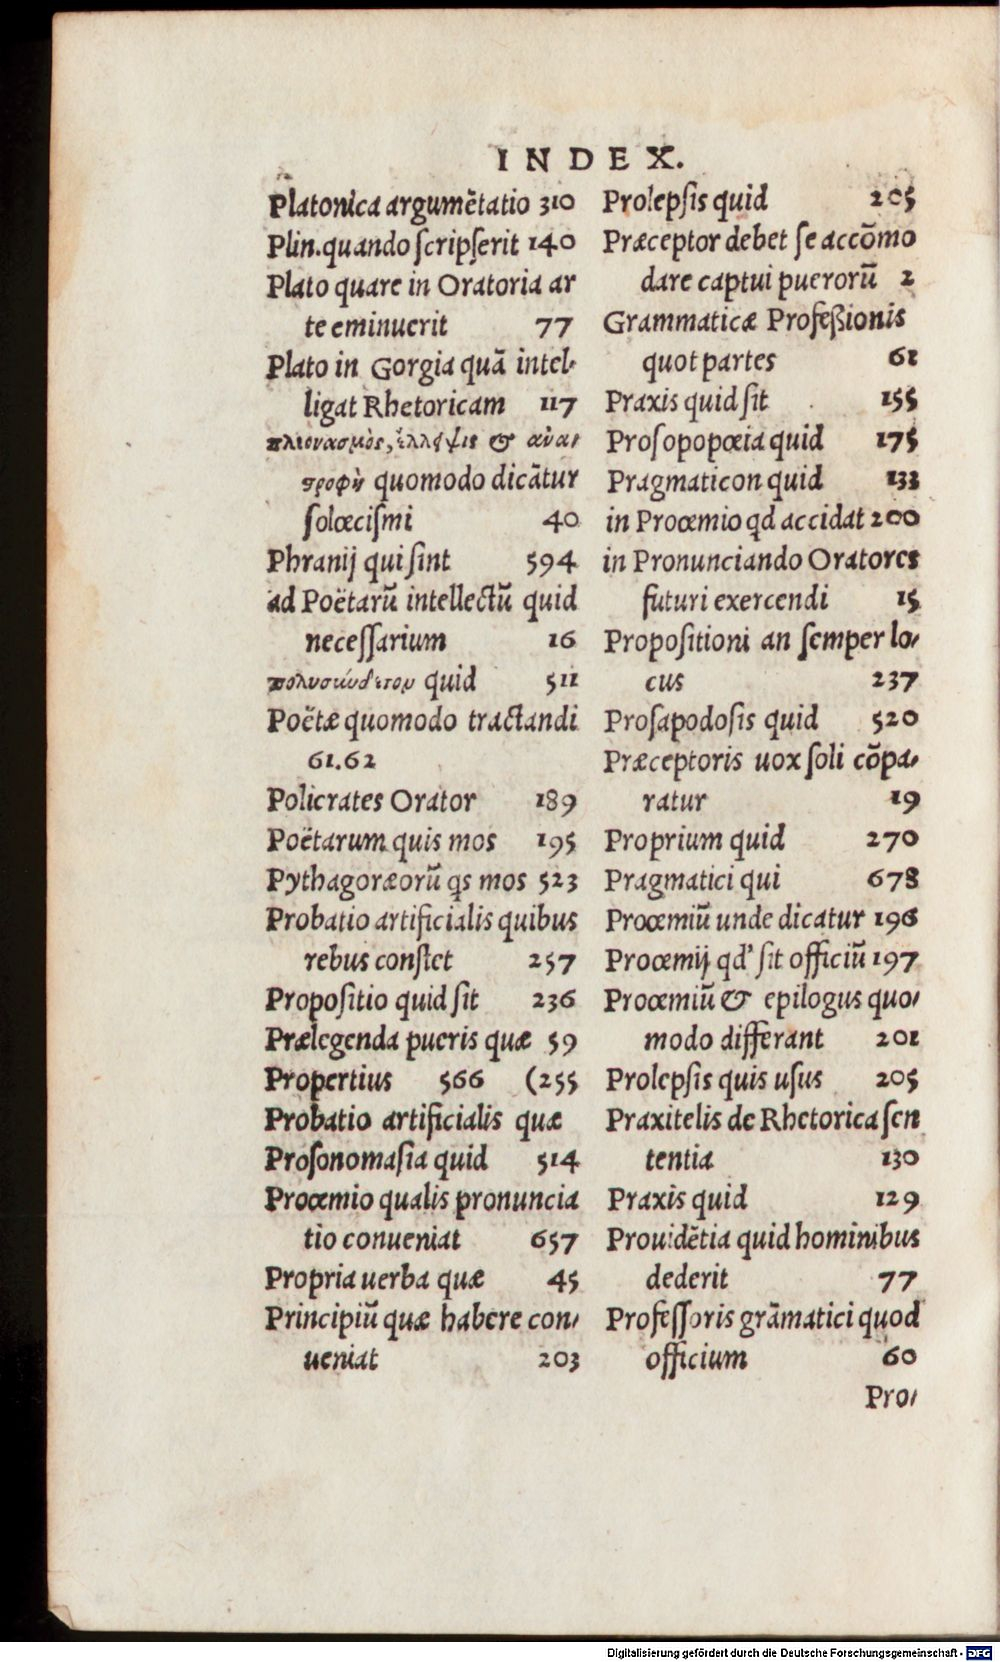 INDEX.
Platonica argumētatio 310
Plin.quando ſcripſerit 140
Plato quare in Oratoria ar
te eminuerit 77
Plato in Gorgia quā intel-
ligat Rhetoricam 117
πλεονασμὸς, ἔλλειψις & ἀνα-
στροφὴ quomodo dicātur
ſolœciſmi 40
Phranij qui ſint 594
ad Poëtarū intellectū quid
neceſſarium 16
πολυσύνδετον quid 511
Poëtæ quomodo tractandi
61.62
Policrates Orator 189
Poëtarum quis mos 195
Pythagoræorū qs mos 523
Probatio artificialis quibus
rebus conſtet 257
Propoſitio quid ſit 236
Prælegenda pueris quæ 59
Propertius 566 (255
Probatio artificialis quæ
Proſonomaſia quid 514
Proœmio qualis pronuncia
tio conueniat 657
Propria uerba quæ 45
Principiū quæ habere con-
ueniat 203
Prolepſis quid 205
Præceptor debet ſe accōmo
dare captui puerorū 2
Grammaticæ Profeßionis
quot partes 61
Praxis quid ſit 155
Proſopopœia quid 175
Pragmaticon quid 133
in Proœmio qd accidat 200
in Pronunciando Oratores
futuri exercendi 15
Propoſitioni an ſemper lo-
cus 237
Proſapodoſis quid 520
Præceptoris uox ſoli cōpa-
ratur 19
Proprium quid 270
Pragmatici qui 678
Proœmiū unde dicatur 196
Proœmij qd' ſit officiū 197
Proœmiū & epilogus quo-
modo differant 201
Prolepſis quis uſus 205
Praxitelis de Rhetorica ſen
tentia 130
Praxis quid 129
Prouidētia quid hominibus
dederit 77
Profeſſoris grāmatici quod
officium 60
Pro-
Digitalisierung gefördert durch die Deutsche Forschungsgemeinschaft - DFG